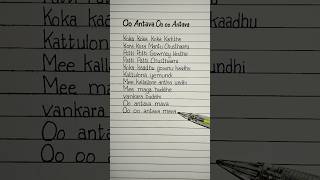 Oo Antava Oo oo Antava
Koka Koka Koka Kadithe
Kora Kora Mantu Chusthaaru
Potti Potti Gowney Vesthe
Patti Patti Chusthaaru
Koka kaadhu gownu kaadhu
Kattulona yemundi
Mee kallallone antha undhi
Mee maga buddhe
vankara buddhi
Oo antava mava
Oo oo antava mava
kaadhu
Kattulon
Mee kal
undhi
Mee
vankara
Oo anta
Oo oo a